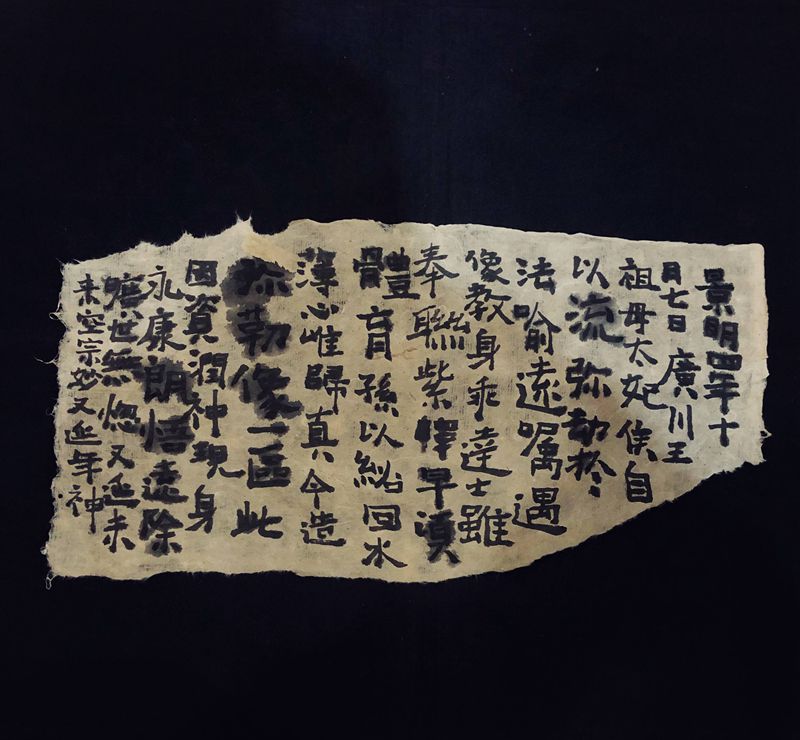 景明四年十
月七日廣川王
祖母太妃侯自
以流弥劫於
法喻遠嘱遇
像教身乖達士雖
奉聯紫暉早
體育孫以紹回水
薄心唯歸真今造
弥勒像一區此
因資潤神現身
永康朗悟遠除
曠世無惚又延未
未空宗妙又延年神